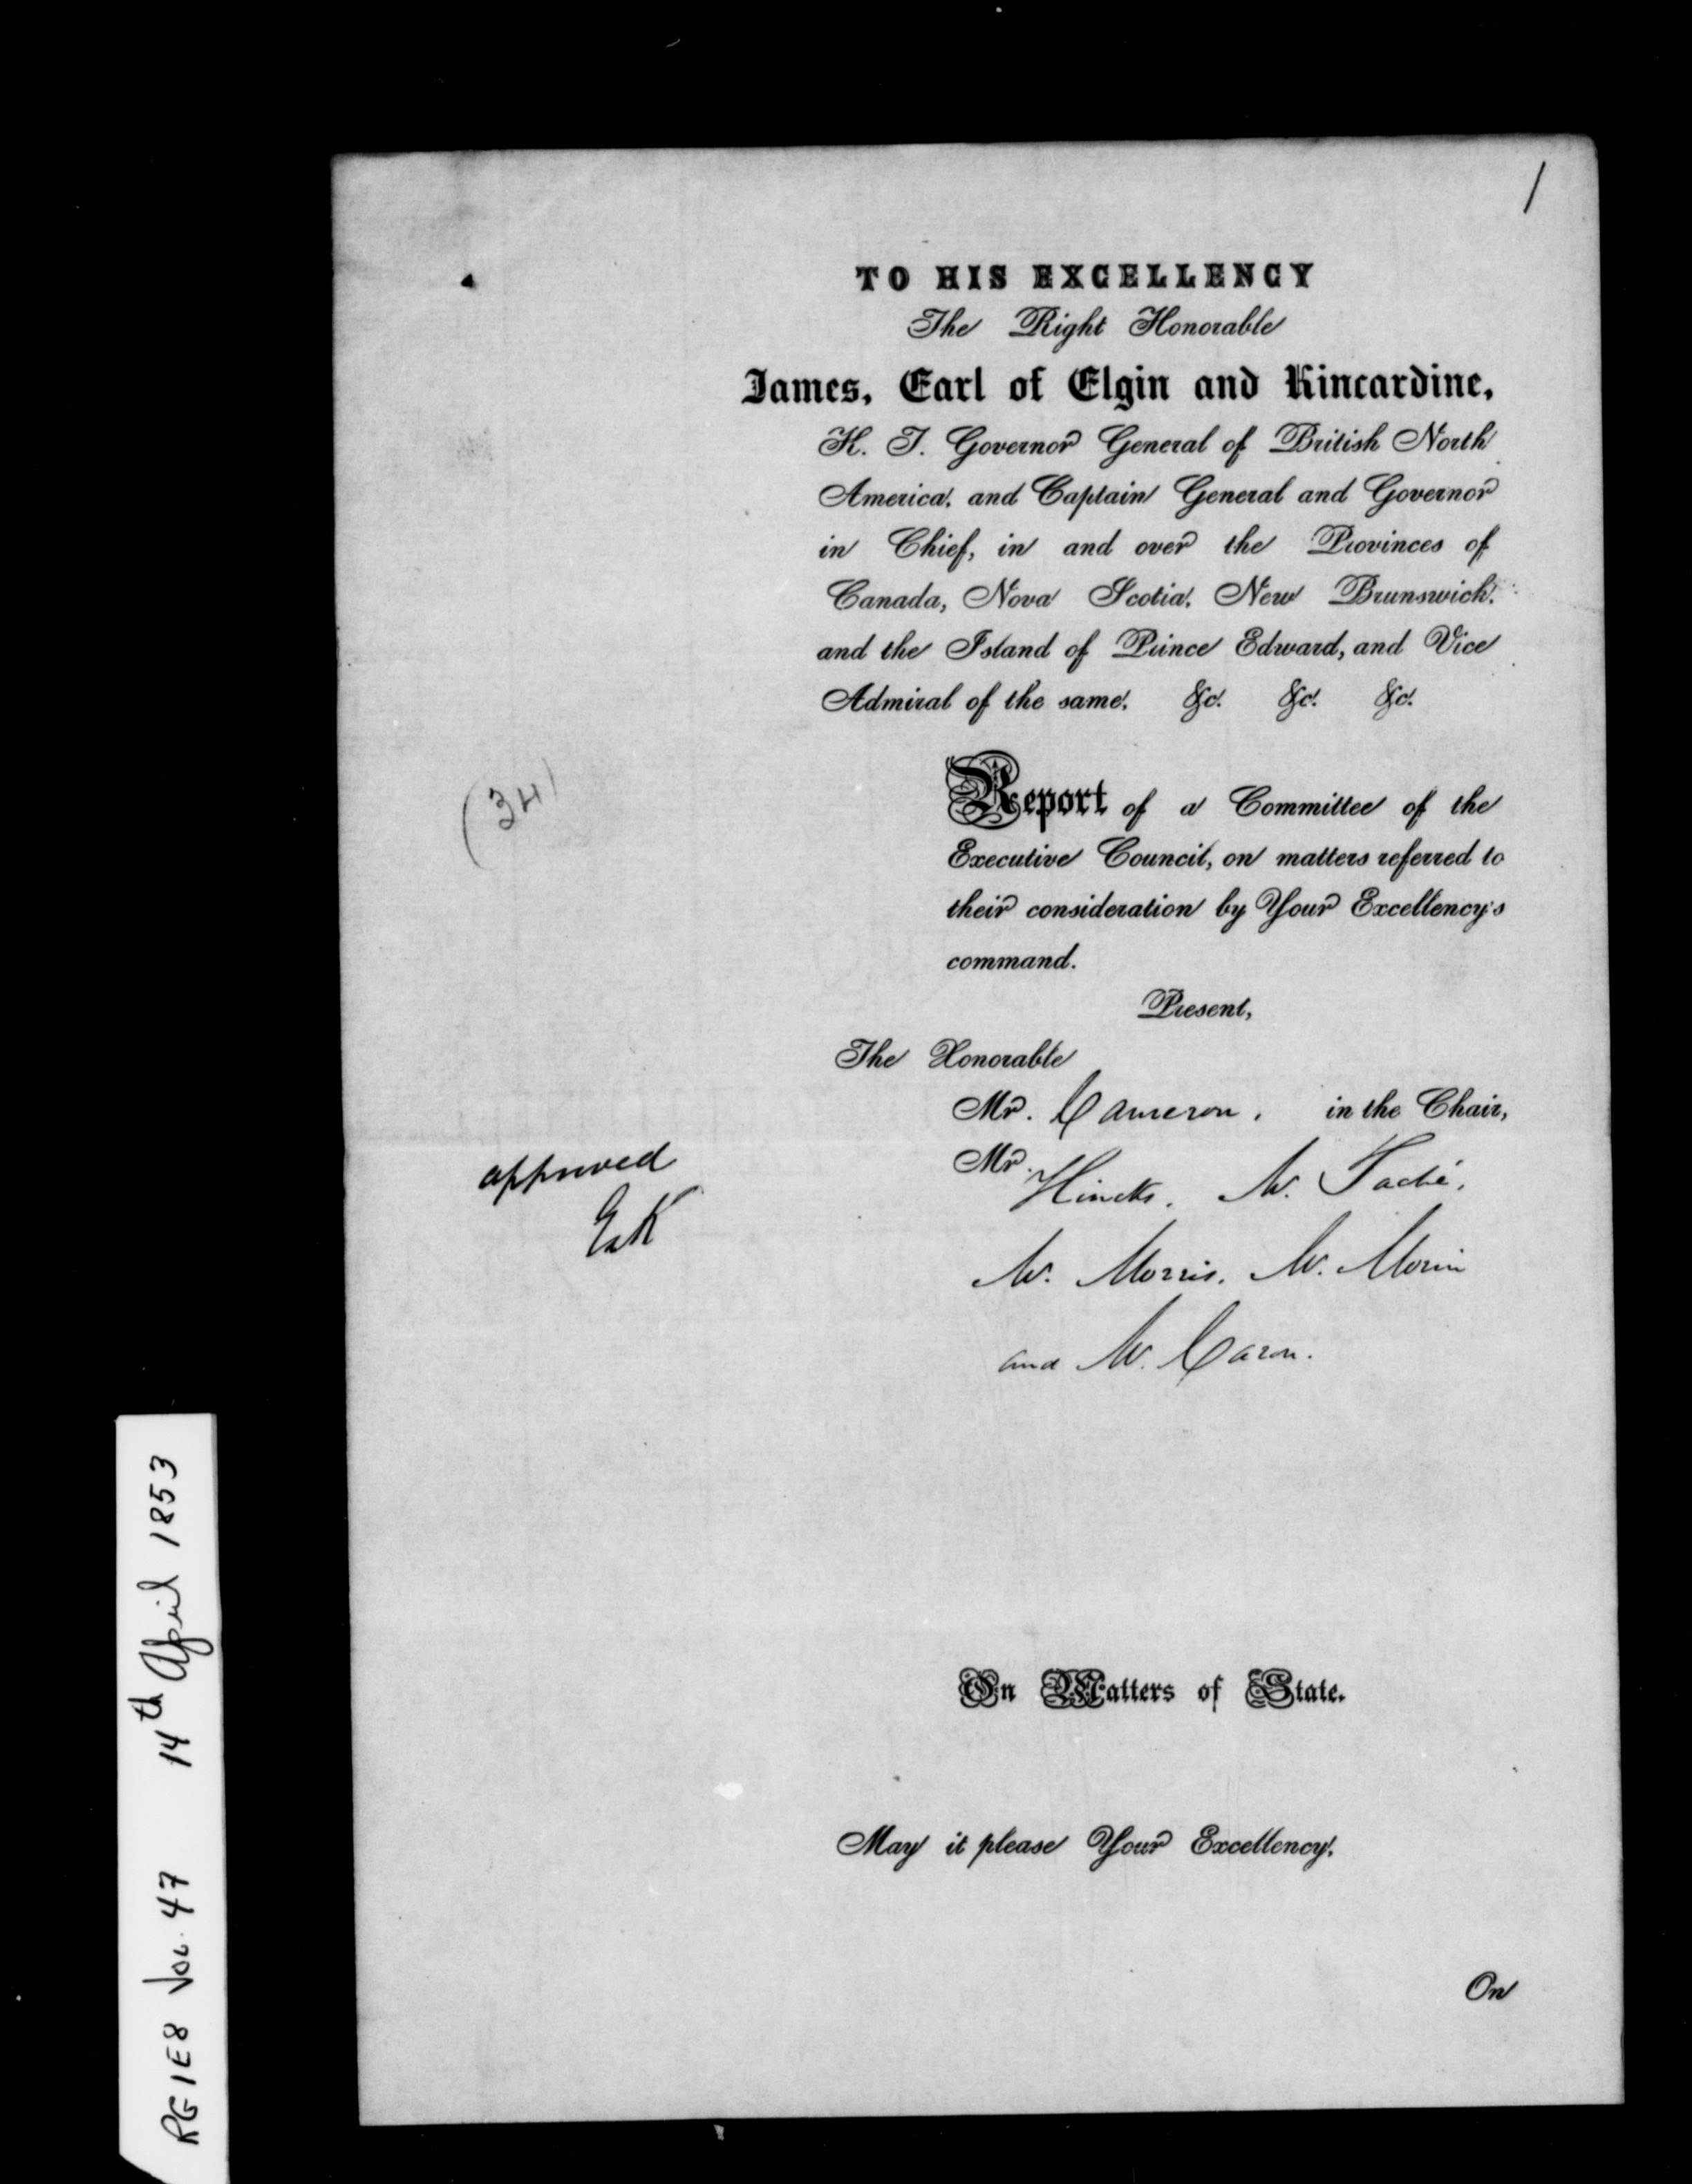 1
TO HIS EXCELLENCY
The Right Honorable
James, Earl of Elgin and Kincardine,
K. T. Governor General of British North
America, and Captain General and Governor
in Chief, in and over the Provinces of
Canada, Nova Scotia, New Brunswick,
and the Island of Prince Edward, and Vice
Admiral of the same, &c. &c. &c.
(34)
Report of a Committee of the
Executive Council, on matters referred to
their consideration by Your Excellency's
command.
Present,
The Honorable
Mr. Cameron, in the Chair,
Mr. Hincks, Mr. Taché,
Mr. Morris, Mr. Morin
and Mr. Caron.
approved
E&K
On Matters of State.
May it please Your Excellency,
On
RG1E8 Vol. 47 14th April 1853